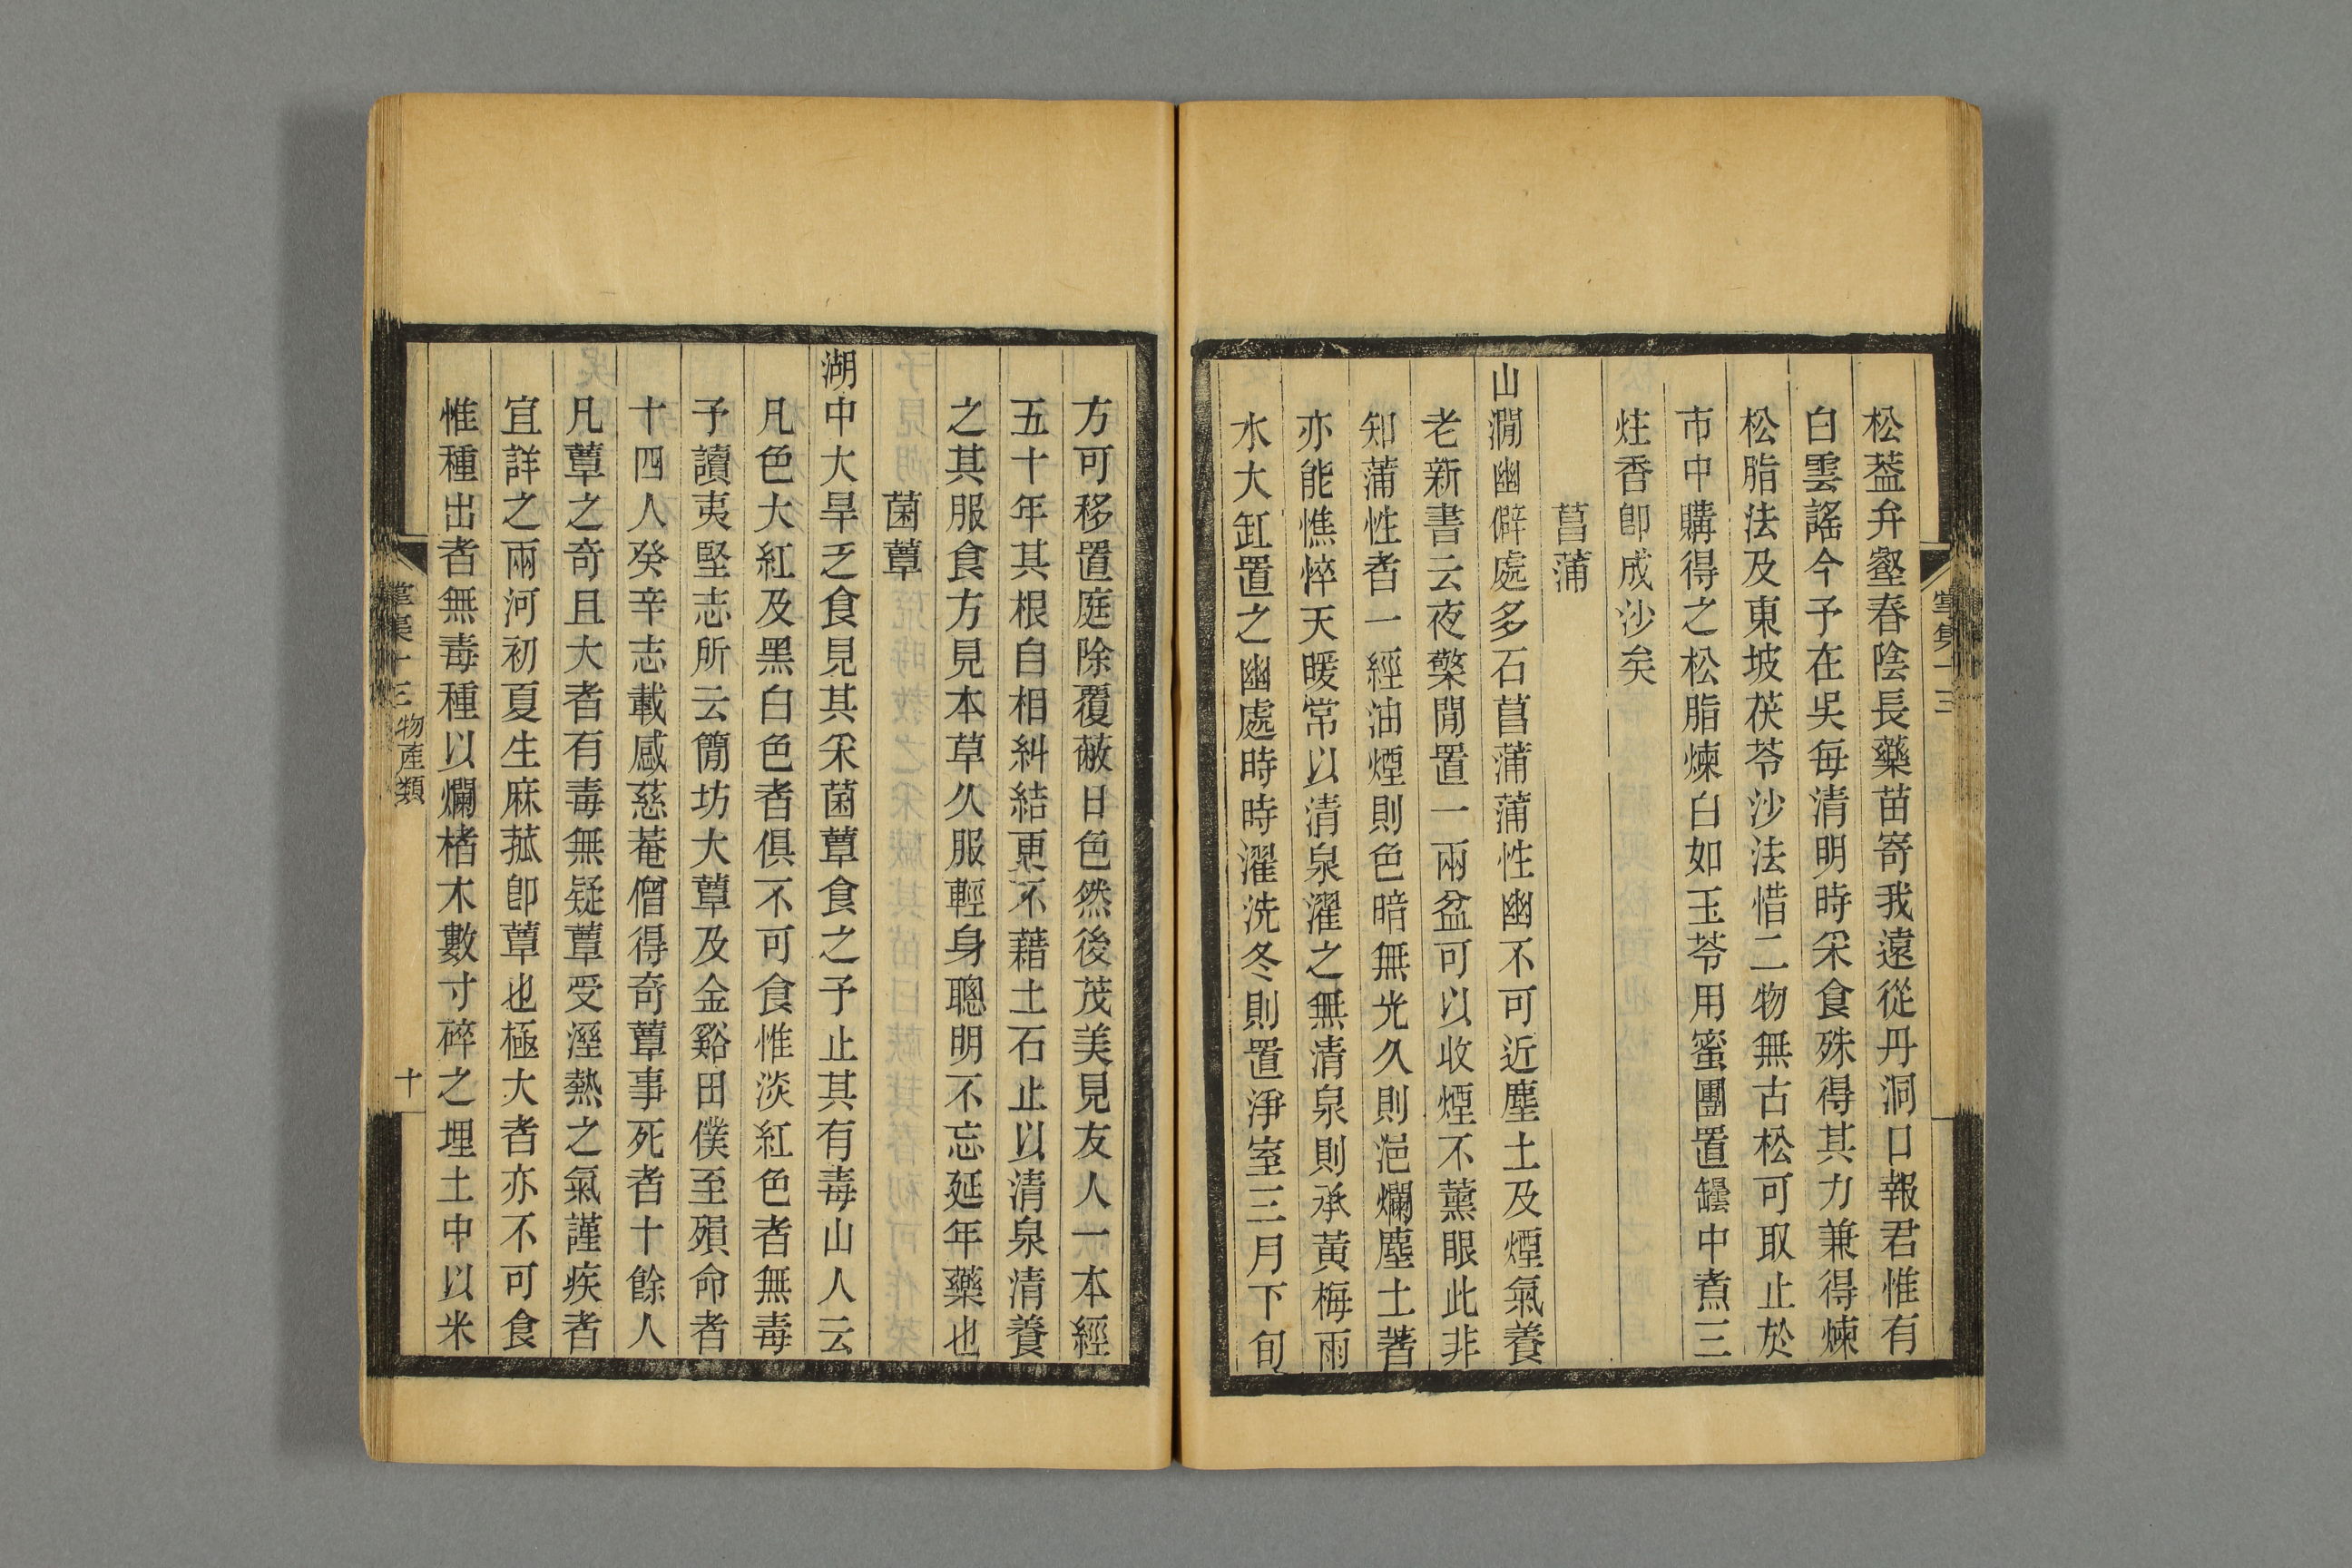 松葢弁壑春陰長藥苗寄我遠從丹洞口報君惟有
白雲謠今予在吳每清明時采食殊得其力兼得煉
松脂法及東坡茯苓沙法惜二物無古松可取止於
市中購得之松脂煉白如玉苓用蜜團置罎中煮三
炷香卽成沙矣
菖蒲
山澗幽僻處多石菖蒲蒲性幽不可近塵土及煙氣養
老新書云夜檠閒置一兩盆可以收煙不薰眼此非
知蒲性者一經油煙則色暗無光久則浥爛塵土著
亦能憔悴天暖常以清泉濯之無清泉則承黃梅雨
水大缸置之幽處時時濯洗冬則置淨室三月下旬
方可移置庭除覆蔽日色然後茂美見友人一本經
五十年其根自相糾結更不藉土石止以清泉清養
之其服食方見本草久服輕身聰明不忘延年藥也
菌蕈
湖中大旱乏食見其采菌蕈食之予止其有毒山人云
凡色大紅及黑白色者俱不可食惟淡紅色者無毒
予讀夷堅志所云簡坊大蕈及金谿田僕至殞命者
十四人癸辛志載感慈菴僧得奇蕈事死者十餘人
凡蕈之奇且大者有毒無疑蕈受溼熱之氣謹疾者
宜詳之兩河初夏生麻菰卽蕈也極大者亦不可食
惟種出者無毒種以爛楮木數寸碎之埋土中以米
集十三
物產類
十